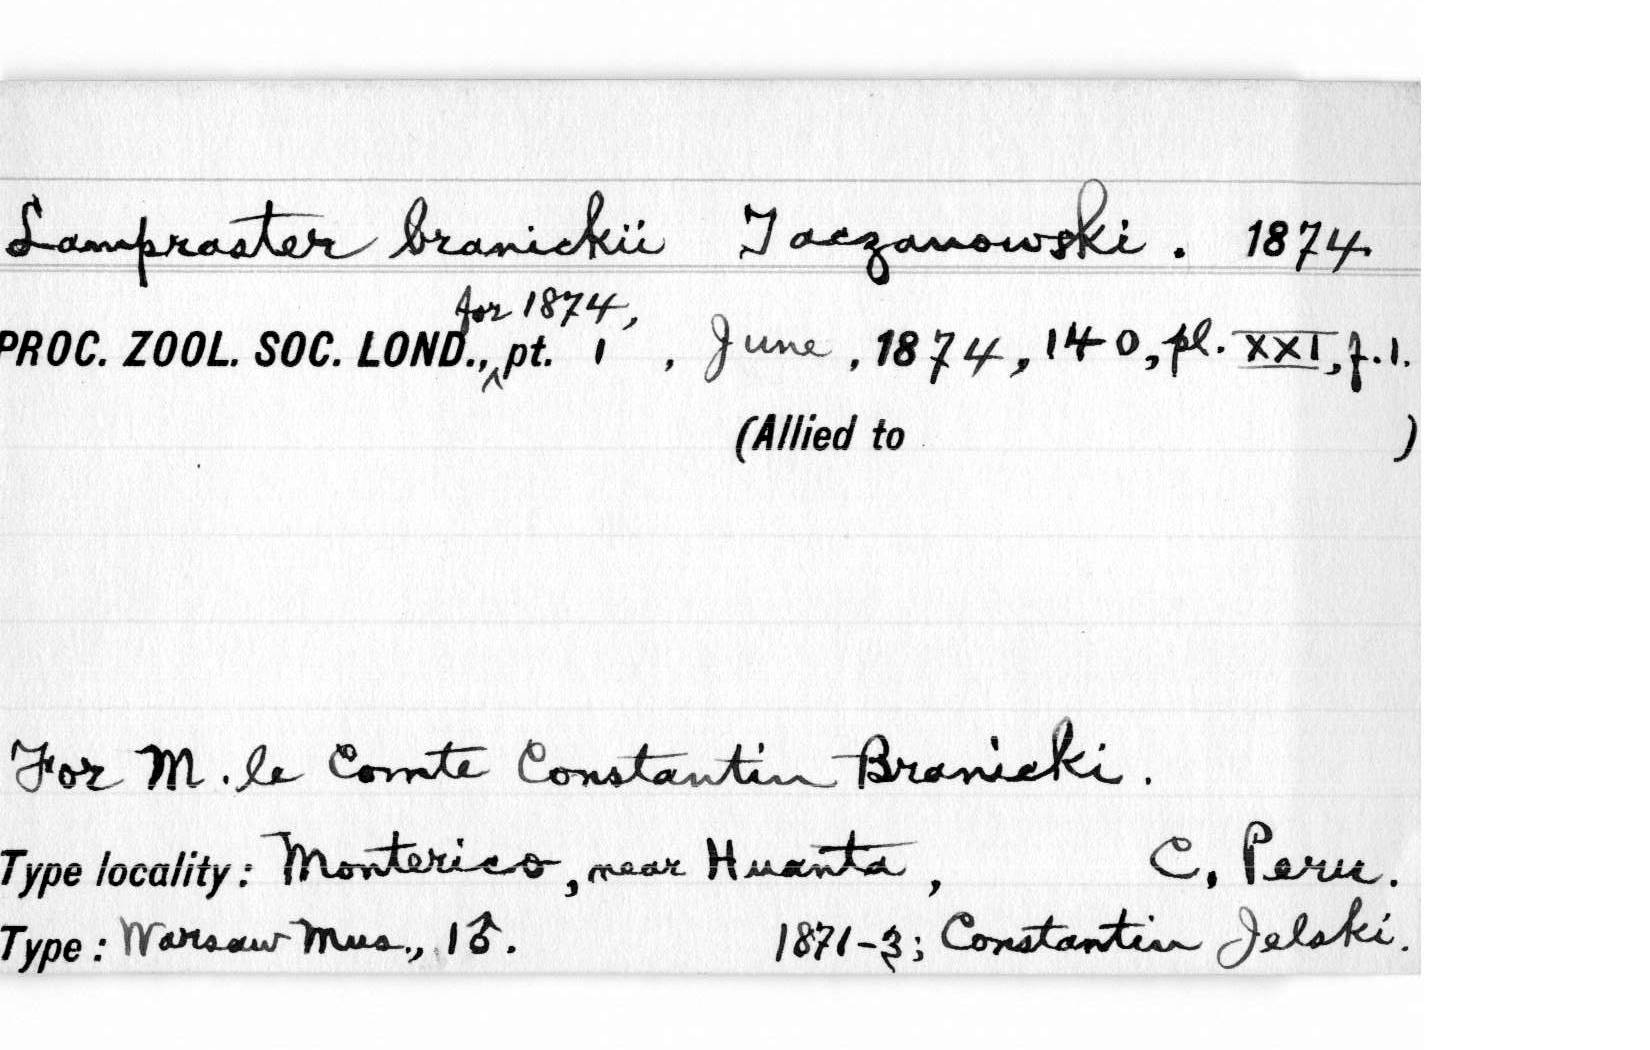 Lampraster branickii Taczanowski. 1874
for 1874,
PROC. ZOOL. SOC. LOND., ^ pt. 1 , June, 1874, 140, pl. XXI, f.1.
(Allied to )
For M. le Comte Constantin Branicki.
Type locality: Monterico, near Huanta, C. Peru.
Type: Warsaw Mus., 1♂. 1871-3; Constantin Jelski.